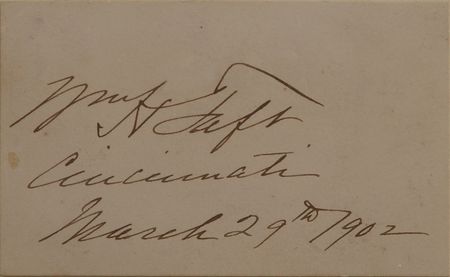 Wm H Taft
Cincinnati
March 29th 1902